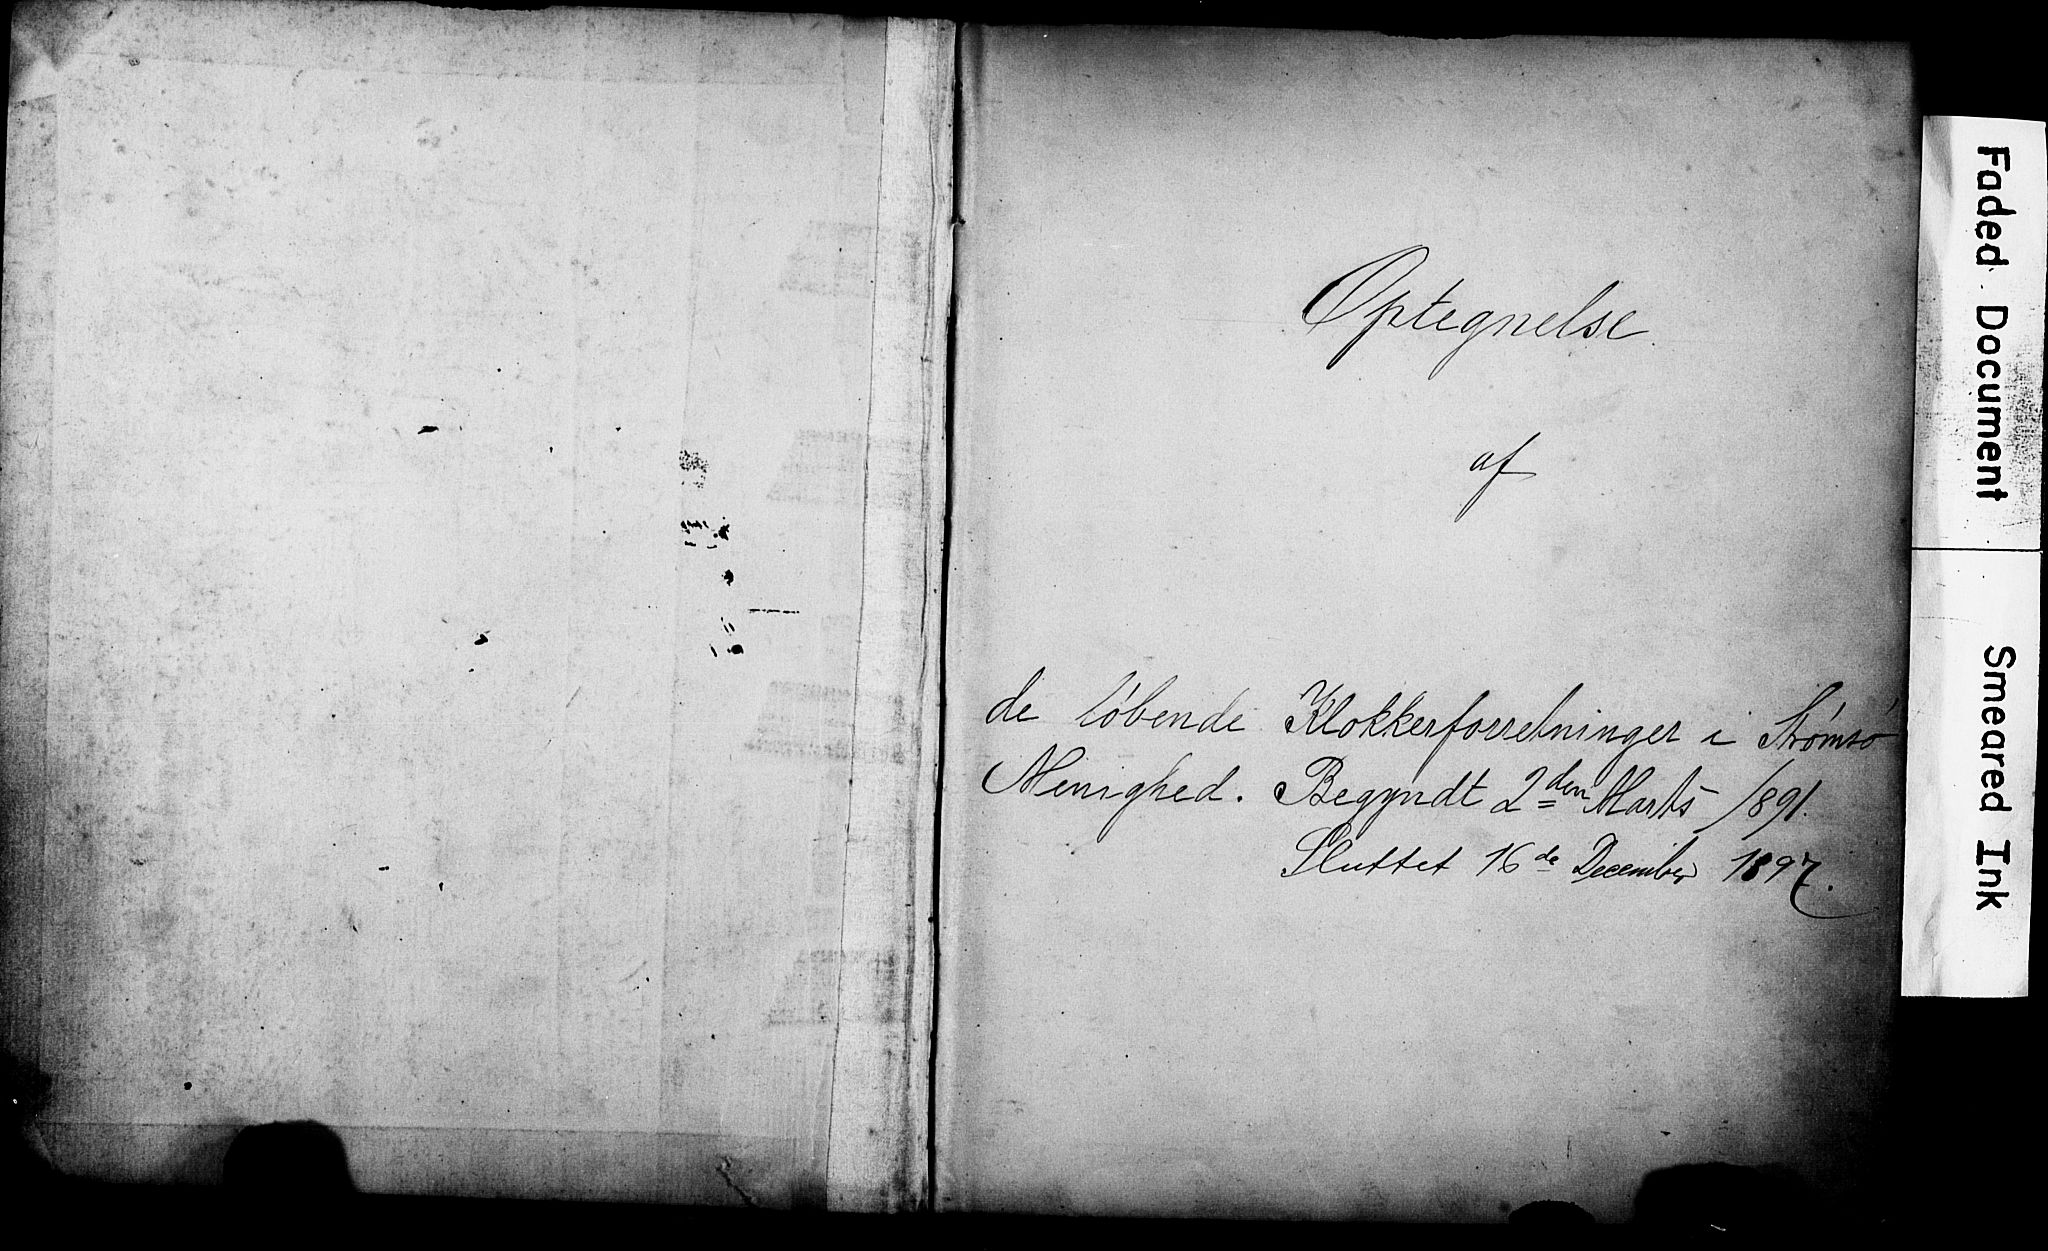 Optegnelse.
af
de løbende Klokkerforretninger i Strømsø
Menighed. Begyndt 2den Marts 1891.
Sluttet 16de December 1897.
Faded Document
Smeared Ink